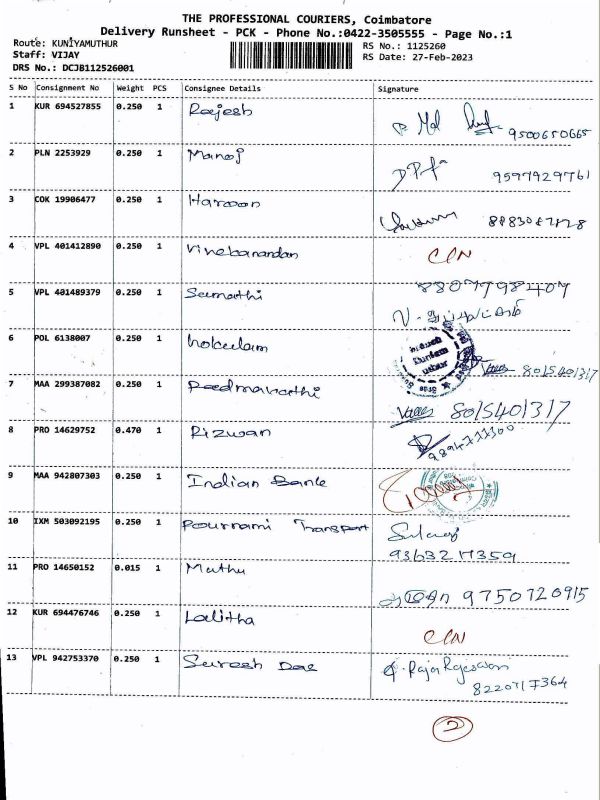 THE PROFESSIONAL COURIERS, Coimbatore
Delivery Runsheet - PCK - Phone No.:0422-3505555 - Page No.:1
Route: KUNIYAMUTHUR
Staff: VIJAY
DRS No.: DCJB112526001
RS No.: 1125260
RS Date: 27-Feb-2023
S No Consignment No Weight PCS Consignee Details Signature
1 KUR 694527855 0.250 1 Rajesh 9500650665
2 PLN 2253929 0.250 1 Manoj 9597929761
3 COK 19906477 0.250 1 Haroon
4 VPL 401412890 0.250 1 Vinebanandan C/N
5 VPL 401489379 0.250 1 Sumathi 8807798407
6 POL 6138007 0.250 1 8015401317
7 MAA 299387082 0.250 1 Padmavathi 8015401317
8 PRO 14629752 0.470 1 Rizwan
9 MAA 942807303 0.250 1 Indian Bank
10 IXM 503092195 0.250 1 Pournami Transport
11 PRO 14650152 0.015 1 Muthu 9750720915
12 KUR 694476746 0.250 1 Lalitha C/N
13 VPL 942753370 0.250 1 Suresh Das Raja Rajeswari
8220717364
2